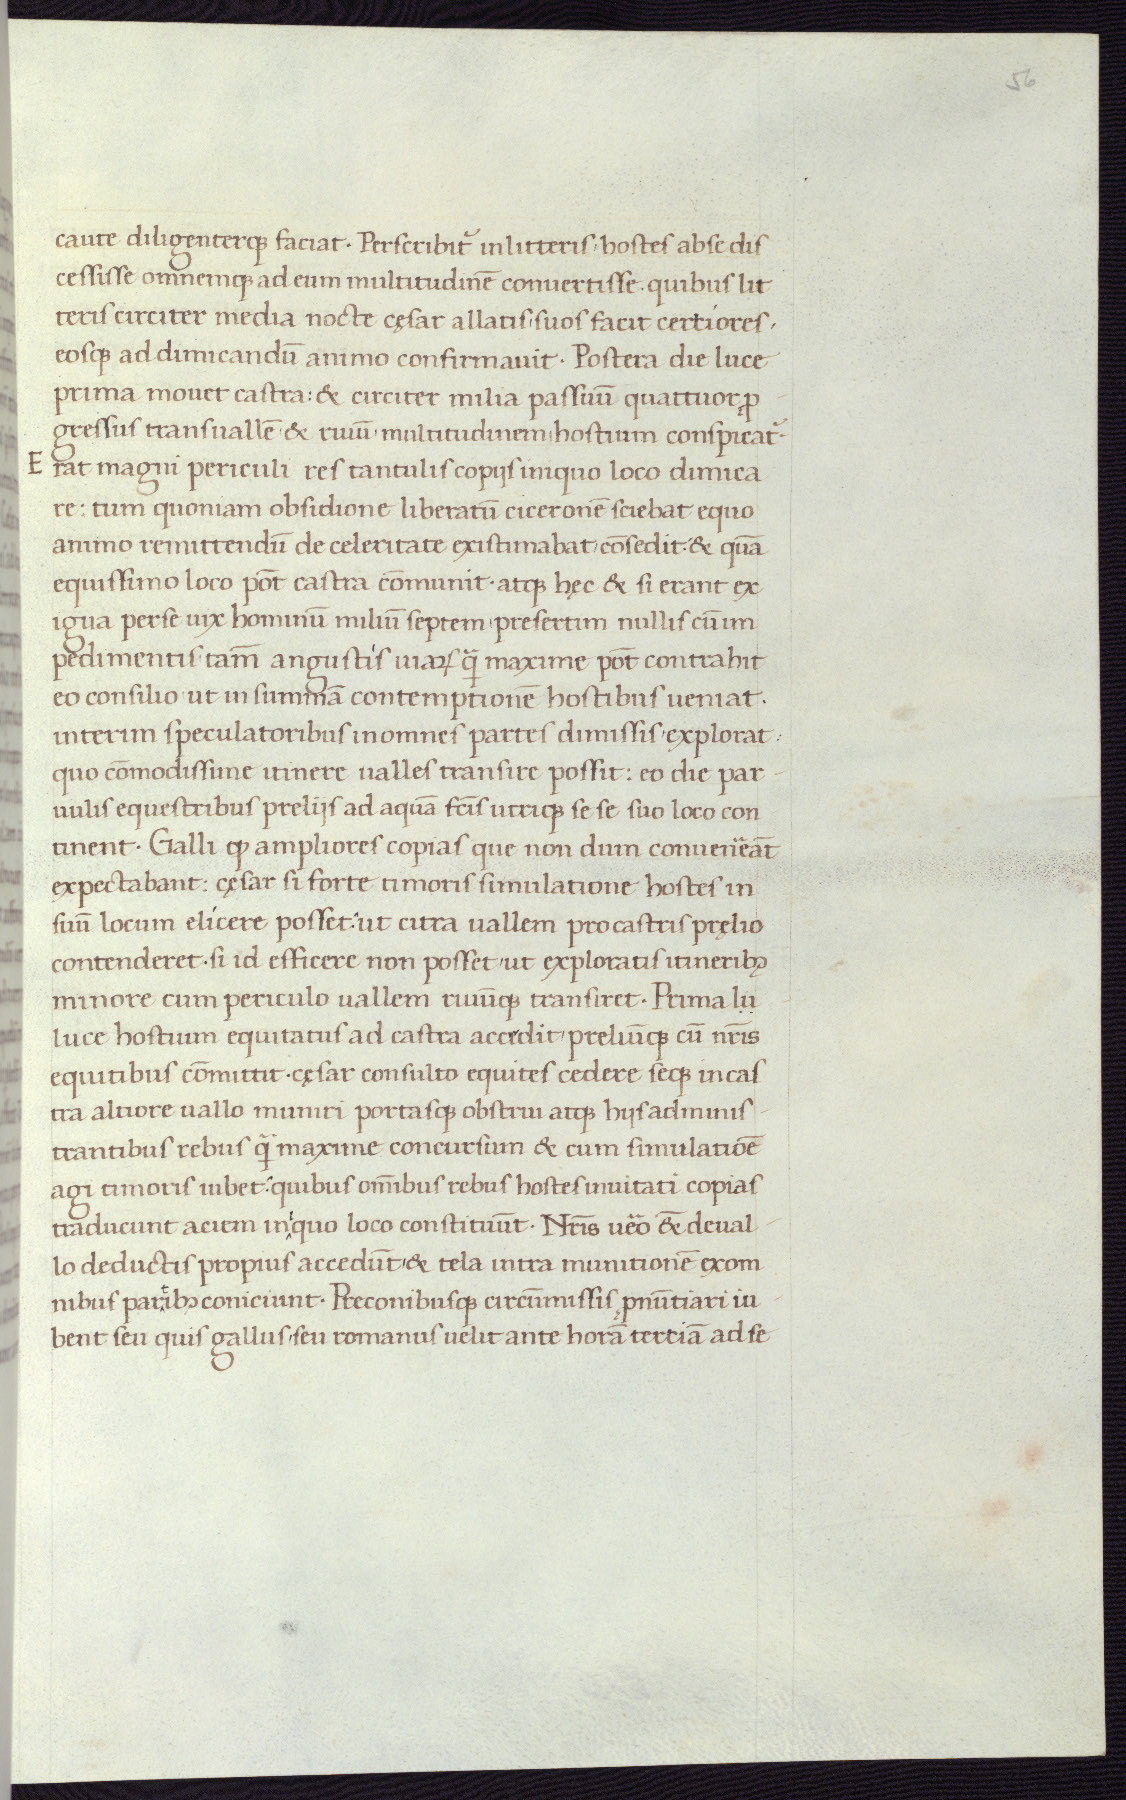 56
caute diligenterqꝫ faciat. Perscribit᷑ inlitteris, hostes abse dis
cessisse omnemqꝫ ad eum multitudinē conuertisse. quibus lit
teris circiter media nocte cęsar allatis, suos facit certiores,
eosqꝫ ad dimicandū animo confirmauit. Postera die luce
prima mouet castra: & circiter milia passuū quattuor ꝓ
gressus transuallē & riuū, multitudinem hostium conspicat᷑.
E rat magni periculi res tantulis copijs iniquo loco dimica
re: tum quoniam obsidione liberatū ciceronē sciebat equo
animo remittendū de celeritate existimabat, cōsedit: & quā
equissimo loco pōt castra cōmunit. atqꝫ hęc & si erant ex
igua perse uix hominū miliū septem, presertim nullis cū im
pedimentis, tam̄ angustis uiaꝝ q̄ maxime pōt contrahit
eo consilio ut in summā contemptionē hostibus ueniat.
interim speculatoribus inomnes partes dimissis, explorat
quo cōmodissime itinere ualles transire possit: eo die par
uulis equestribus prelijs ad aquā fc̄is utriqꝫ se se suo loco con
tinent. Galli qꝫ ampliores copias que non dum conuenēāt
expectabant: cęsar si forte timoris simulatione hostes in
suū locum elicere posset: ut citra uallem procastris pręlio
contenderet. si id efficere non posset, ut exploratis itineribꝫ
minore cum periculo uallem riuūqꝫ transiret. Prima lu
luce hostium equitatus ad castra accedit, preliūqꝫ cū nr̄is
equitibus cōmittit. cęsar consulto equites cedere seqꝫ incas
tra altiore uallo muniri portasqꝫ obstrui atqꝫ hijs adminis
trantibus rebus q̄ maxime concursum & cum simulatiōe
agi timoris iubet: quibus om̄ibus rebus hostes inuitati copias
traducunt aciem iniquo loco constituūt. Nr̄is uēo & deual
lo deductis propius accedūt, & tela intra munitionē exom
nibus partibꝫ coniciunt. Preconibusqꝫ circūmissis pnūtiari iu
bent seu quis gallus, seu romanus uelit ante horā tertiā ad se